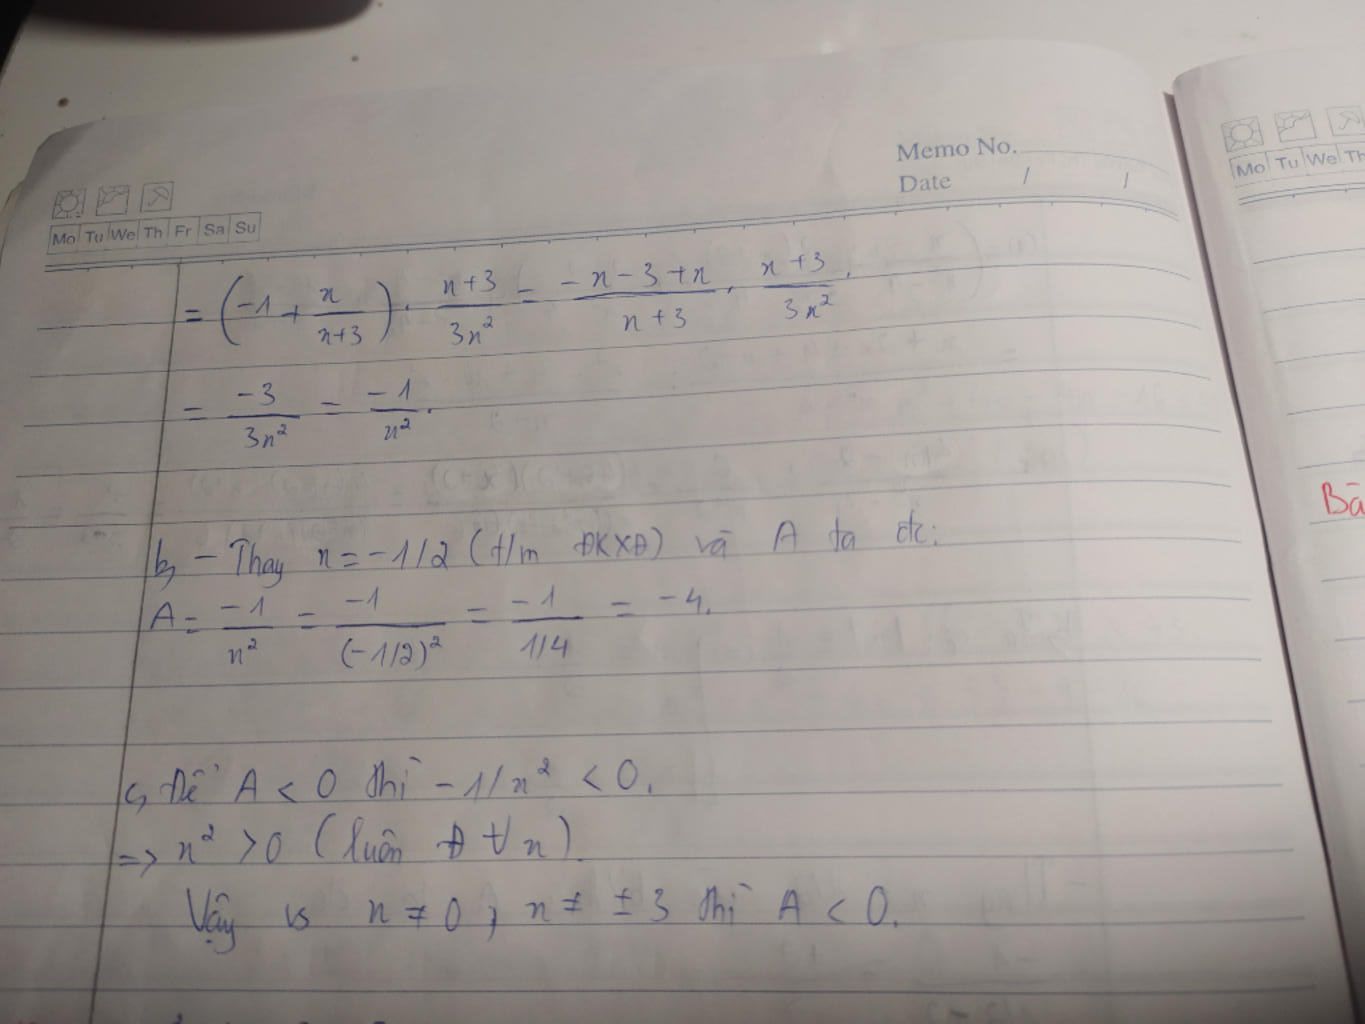 Memo No.
Date / /
Mo Tu We Th Fr Sa Su
Mo Tu We Th
= (-1 + x/(x+3)) . (x+3)/(3x²) = (-x-3+x)/(x+3) . (x+3)/(3x²).
= -3/(3x²) = -1/x².
b, - Thay x = -1/2 (t/m ĐKXĐ) và A ta đc:
A = -1/x² = -1/(-1/2)² = -1/(1/4) = -4.
c, Để A < 0 thì -1/x² < 0.
=> x² > 0 (luôn Đ ∀x).
Vậy vs x ≠ 0; x ≠ ±3 thì A < 0.
Bà